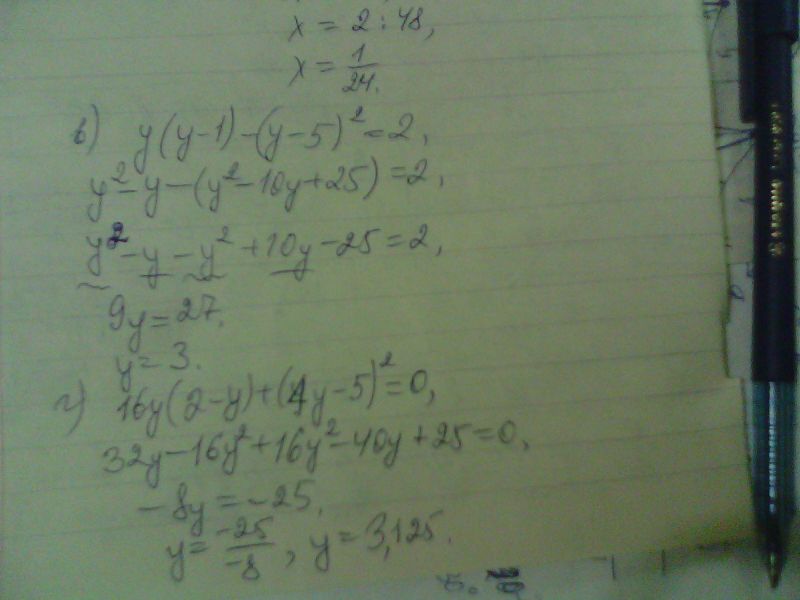 x = 2 : 48,
x = 1/24.
в) y(y-1)-(y-5)² = 2,
y² - y - (y² - 10y + 25) = 2,
y² - y - y² + 10y - 25 = 2,
9y = 27.
y = 3.
г) 16y(2-y) + (4y-5)² = 0,
32y - 16y² + 16y² - 40y + 25 = 0,
-8y = -25.
y = -25/-8, y = 3,125.